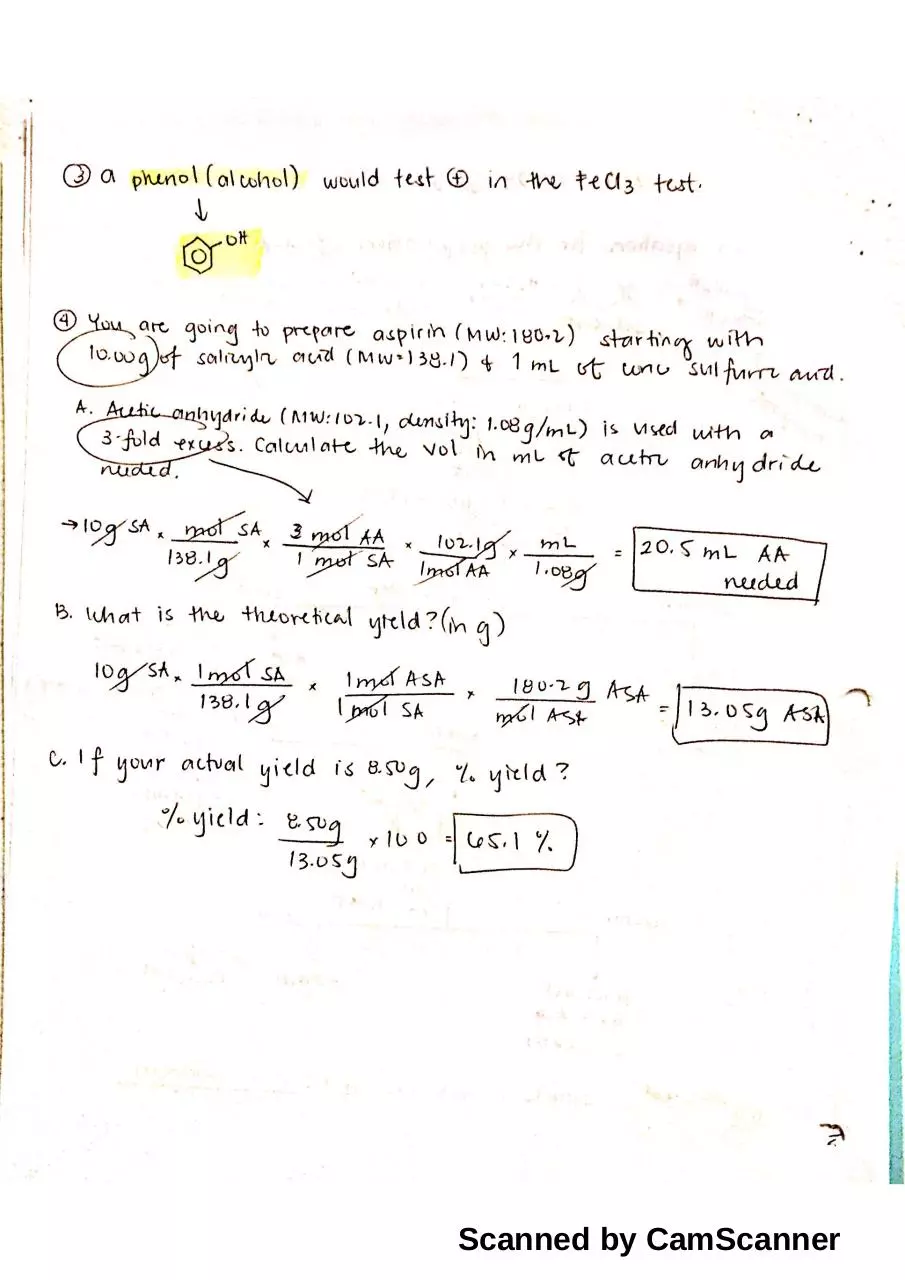 ③ a phenol (alcohol) would test ⊕ in the FeCl3 test.
↓
OH
④ You are going to prepare aspirin (MW: 180.2) starting with
10.00g of salicylic acid (MW=138.1) & 1 mL of conc sulfuric acid.
A. Acetic anhydride (MW: 102.1, density: 1.08 g/mL) is used with a
3-fold excess. Calculate the vol in mL of acetic anhydride
needed.
→ 10g SA × mol SA / 138.1g × 3 mol AA / 1 mol SA × 102.1g / 1 mol AA × mL / 1.08g = 20.5 mL AA needed
B. What is the theoretical yield? (in g)
10g SA × 1 mol SA / 138.1g × 1 mol ASA / 1 mol SA × 180.2 g ASA / mol ASA = 13.05g ASA
C. If your actual yield is 8.50g, % yield?
% yield: 8.50g / 13.05g × 100 = 65.1 %
Scanned by CamScanner